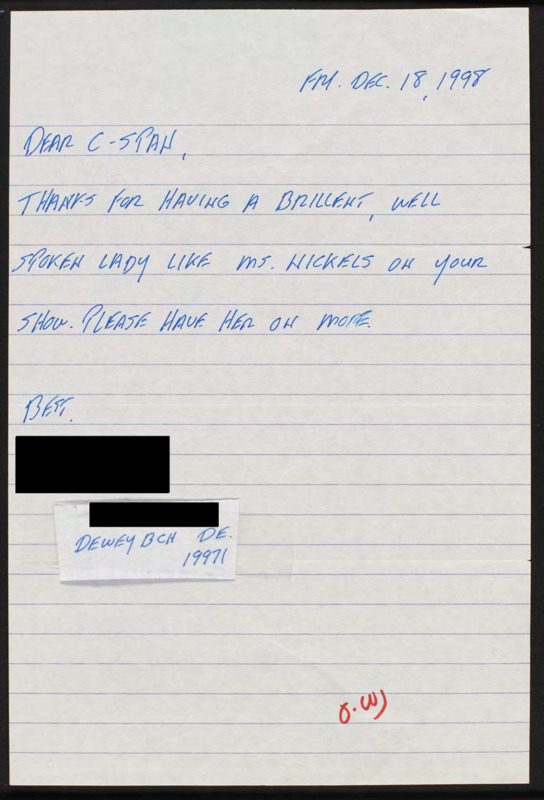 FRI. DEC. 18, 1998
DEAR C-SPAN,
THANKS FOR HAVING A BRILLENT, WELL
SPOKEN LADY LIKE MS. NICKELS ON YOUR
SHOW. PLEASE HAVE HER ON MORE.
BEST.
DEWEY BCH DE.
19971